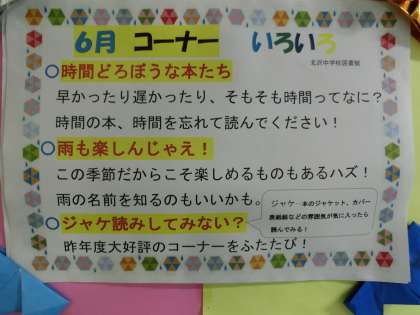 6月 コーナー いろいろ
北沢中学校図書館
○時間どろぼうな本たち
早かったり遅かったり、そもそも時間ってなに？
時間の本、時間を忘れて読んでください！
○雨も楽しんじゃえ！
この季節だからこそ楽しめるものもあるハズ！
雨の名前を知るのもいいかも。
○ジャケ読みしてみない？
ジャケ…本のジャケット、カバー
表紙絵などの雰囲気が気に入ったら
読んでみる！
昨年度大好評のコーナーをふたたび！